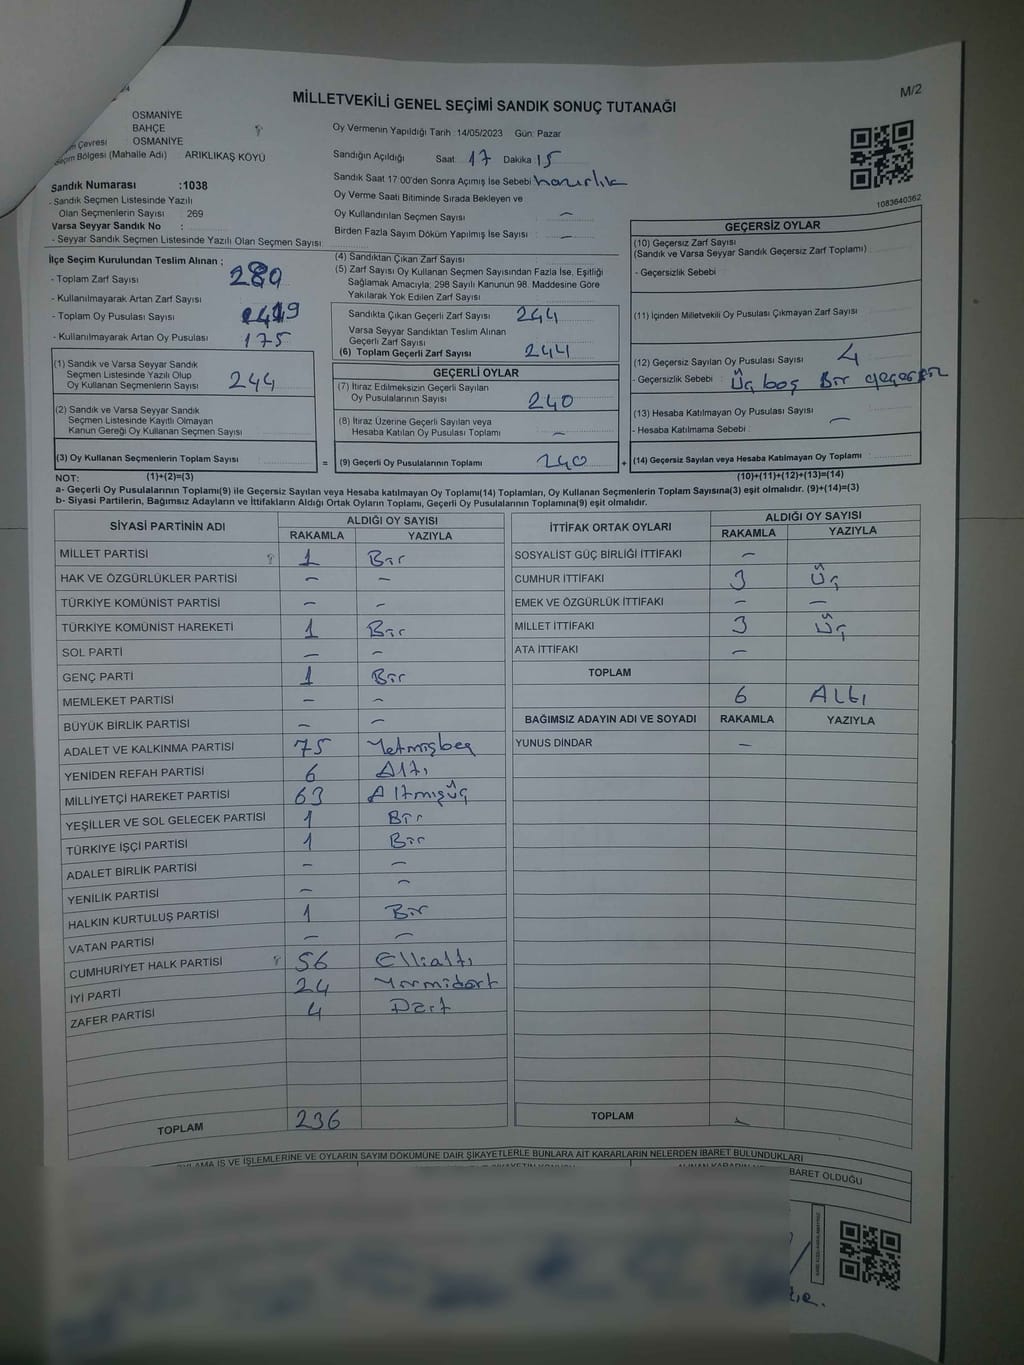 MİLLETVEKİLİ GENEL SEÇİMİ SANDIK SONUÇ TUTANAĞI
M/2
OSMANİYE
BAHÇE
Çevresi OSMANİYE
Bölgesi (Mahalle Adı) ARIKLIKAŞ KÖYÜ
Sandık Numarası :1038
- Sandık Seçmen Listesinde Yazılı
Olan Seçmenlerin Sayısı : 269
Varsa Seyyar Sandık No :
- Seyyar Sandık Seçmen Listesinde Yazılı Olan Seçmen Sayısı:
Oy Vermenin Yapıldığı Tarih :14/05/2023 Gün: Pazar
Sandığın Açıldığı Saat: 17 Dakika 15
Sandık Saat 17:00'den Sonra Açımış İse Sebebi hazırlık
Oy Verme Saati Bitiminde Sırada Bekleyen ve
Oy Kullandırılan Seçmen Sayısı –
Birden Fazla Sayım Döküm Yapılmış İse Sayısı –
1083640362
İlçe Seçim Kurulundan Teslim Alınan ;
- Toplam Zarf Sayısı 280
- Kullanılmayarak Artan Zarf Sayısı
- Toplam Oy Pusulası Sayısı
- Kullanılmayarak Artan Oy Pusulası 175
(1) Sandık ve Varsa Seyyar Sandık
Seçmen Listesinde Yazılı Olup
Oy Kullanan Seçmenlerin Sayısı 244
(2) Sandık ve Varsa Seyyar Sandık
Seçmen Listesinde Kayıtlı Olmayan
Kanun Gereği Oy Kullanan Seçmen Sayısı
(3) Oy Kullanan Seçmenlerin Toplam Sayısı
(4) Sandıktan Çıkan Zarf Sayısı
(5) Zarf Sayısı Oy Kullanan Seçmen Sayısından Fazla İse, Eşitliği
Sağlamak Amacıyla; 298 Sayılı Kanunun 98. Maddesine Göre
Yakılarak Yok Edilen Zarf Sayısı
Sandıkta Çıkan Geçerli Zarf Sayısı 244
Varsa Seyyar Sandıktan Teslim Alınan
Geçerli Zarf Sayısı
(6) Toplam Geçerli Zarf Sayısı 244
GEÇERLİ OYLAR
(7) İtiraz Edilmeksizin Geçerli Sayılan
Oy Pusulalarının Sayısı 240
(8) İtiraz Üzerine Geçerli Sayılan veya
Hesaba Katılan Oy Pusulası Toplamı –
= (9) Geçerli Oy Pusulalarının Toplamı 240 +
GEÇERSİZ OYLAR
(10) Geçersiz Zarf Sayısı
(Sandık ve Varsa Seyyar Sandık Geçersiz Zarf Toplamı)
- Geçersizlik Sebebi
(11) İçinden Milletvekili Oy Pusulası Çıkmayan Zarf Sayısı
(12) Geçersiz Sayılan Oy Pusulası Sayısı 4
- Geçersizlik Sebebi : Üç boş Bir geçersiz
(13) Hesaba Katılmayan Oy Pusulası Sayısı
- Hesaba Katılmama Sebebi : –
(14) Geçersiz Sayılan veya Hesaba Katılmayan Oy Toplamı :
NOT: (1)+(2)=(3) (10)+(11)+(12)+(13)=(14)
a- Geçerli Oy Pusulalarının Toplamı(9) ile Geçersiz Sayılan veya Hesaba katılmayan Oy Toplamı(14) Toplamları, Oy Kullanan Seçmenlerin Toplam Sayısına(3) eşit olmalıdır. (9)+(14)=(3)
b- Siyasi Partilerin, Bağımsız Adayların ve İttifakların Aldığı Ortak Oyların Toplamı, Geçerli Oy Pusulalarının Toplamına(9) eşit olmalıdır.
SİYASİ PARTİNİN ADI ALDIĞI OY SAYISI
RAKAMLA YAZIYLA
MİLLET PARTİSİ 1 Bir
HAK VE ÖZGÜRLÜKLER PARTİSİ – –
TÜRKİYE KOMÜNİST PARTİSİ – –
TÜRKİYE KOMÜNİST HAREKETİ 1 Bir
SOL PARTİ – –
GENÇ PARTİ 1 Bir
MEMLEKET PARTİSİ – –
BÜYÜK BİRLİK PARTİSİ – –
ADALET VE KALKINMA PARTİSİ 75 Yetmişbeş
YENİDEN REFAH PARTİSİ 6 Altı
MİLLİYETÇİ HAREKET PARTİSİ 63 Altmışüç
YEŞİLLER VE SOL GELECEK PARTİSİ 1 Bir
TÜRKİYE İŞÇİ PARTİSİ 1 Bir
ADALET BİRLİK PARTİSİ – –
YENİLİK PARTİSİ – –
HALKIN KURTULUŞ PARTİSİ 1 Bir
VATAN PARTİSİ – –
CUMHURİYET HALK PARTİSİ 56 Ellialtı
İYİ PARTİ 24 Yırmidört
ZAFER PARTİSİ 4 Dört
TOPLAM 236
İTTİFAK ORTAK OYLARI ALDIĞI OY SAYISI
RAKAMLA YAZIYLA
SOSYALİST GÜÇ BİRLİĞİ İTTİFAKI –
CUMHUR İTTİFAKI 3 Üç
EMEK VE ÖZGÜRLÜK İTTİFAKI – –
MİLLET İTTİFAKI 3 Üç
ATA İTTİFAKI –
TOPLAM
6 Altı
BAĞIMSIZ ADAYIN ADI VE SOYADI RAKAMLA YAZIYLA
YUNUS DİNDAR –
TOPLAM –
İŞ VE İŞLEMLERİNE VE OYLARIN SAYIM DÖKÜMÜNE DAİR ŞİKAYETLERLE BUNLARA AİT KARARLARIN NELERDEN İBARET BULUNDUKLARI
BARET OLDUĞU